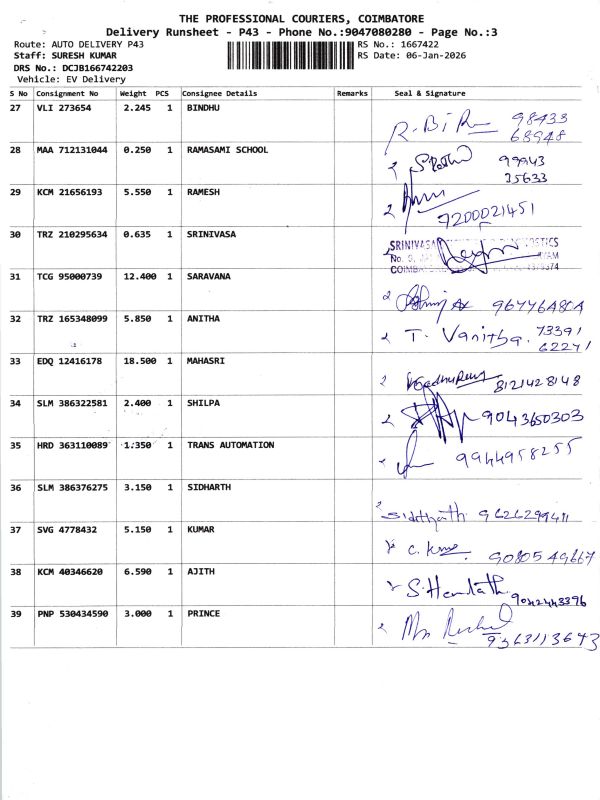 THE PROFESSIONAL COURIERS, COIMBATORE
Delivery Runsheet - P43 - Phone No.:9047080280 - Page No.:3
Route: AUTO DELIVERY P43 RS No.: 1667422
Staff: SURESH KUMAR RS Date: 06-Jan-2026
DRS No.: DCJB166742203
Vehicle: EV Delivery
S No Consignment No Weight PCS Consignee Details Remarks Seal & Signature
27 VLI 273654 2.245 1 BINDHU
98433
68948
28 MAA 712131044 0.250 1 RAMASAMI SCHOOL
99943
35633
29 KCM 21656193 5.550 1 RAMESH
7200021451
30 TRZ 210295634 0.635 1 SRINIVASA
SRINIVASA
31 TCG 95000739 12.400 1 SARAVANA
32 TRZ 165348099 5.850 1 ANITHA
T. Vanitha. 73391
62271
33 EDQ 12416178 18.500 1 MAHASRI
8121428148
34 SLM 386322581 2.400 1 SHILPA
9043650303
35 HRD 363110089 1.350 1 TRANS AUTOMATION
9944958255
36 SLM 386376275 3.150 1 SIDHARTH
Siddhath 9626299411
37 SVG 4778432 5.150 1 KUMAR
9080549667
38 KCM 40346620 6.590 1 AJITH
9042443396
39 PNP 530434590 3.000 1 PRINCE
9363113643